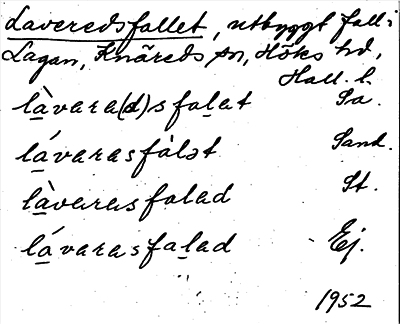 Laveredsfallet, utbyggt fall i
Lagan, Knäreds sn, Höks hd,
Hall. l.
làvara(d)sfalat Sa.
lávarasfàlət Sand.
làvarasfalad St.
lávarasfalad Ej.
1952